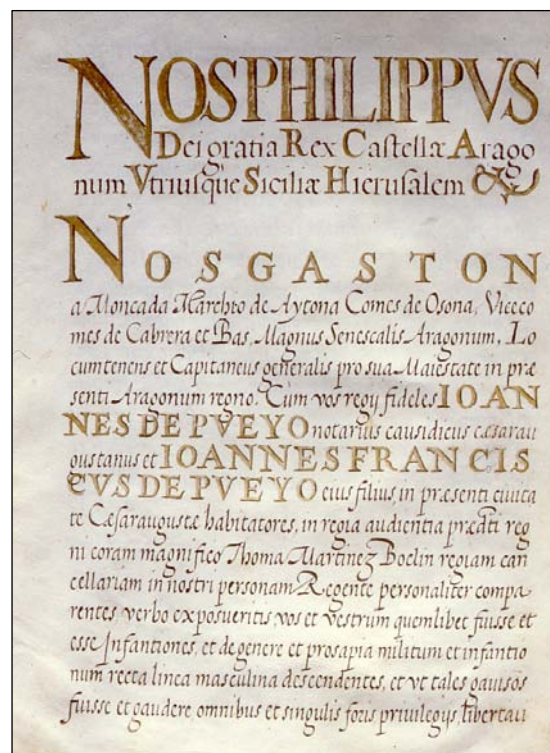 NOS PHILIPPVS
Dei gratia Rex Castellæ Arago
num Vtriusque Siciliæ Hierusalem &c
NOS GASTON
a Moncada Marchio de Aytona Comes de Osona, Viceco
mes de Cabrera et Bas, Magnus Senescalis Aragonum, Lo
cumtenens et Capitaneus generalis pro sua Maiestate in præ
senti Aragonum regno. Cùm vos regij fideles IOAN
NES DE PVEYO notarius causidicus cæsarau
gustanus et IOANNES FRANCIS
CVS DE PVEYO eius filius, in præsenti civita
te Cæsaraugustæ habitatores, in regia audientia prædti reg
ni coram magnifico Thoma Martinez Boclin regiam can
cellariam in nostri personam Regente personaliter compa
rentes verbo exposueritis vos et vestrum quemlibet fuisse et
esse Infantiones, et de genere et prosapia militum et infantio
num recta linea masculina descendentes, et vt tales gavisos
fuisse et gaudere omnibus et singulis foris privilegijs, libertati